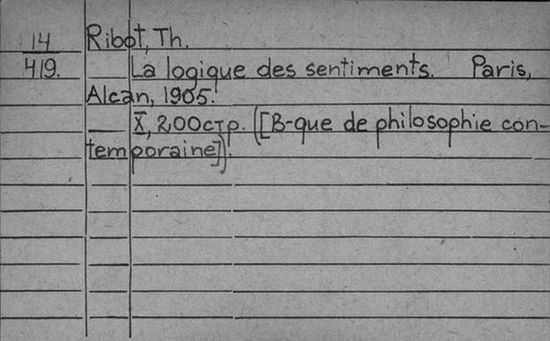 14 Ribot, Th.
419. La logique des sentiments. Paris,
Alcan, 1905.
X, 200стр. ([B-que de philosophie con-
temporaine]).